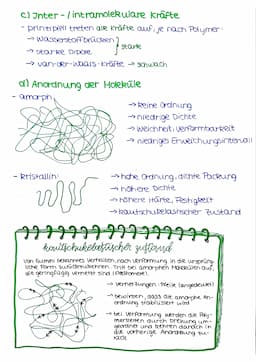 c) Inter-/intramolekulare Kräfte
- prinzipiell treten alle Kräfte auf, je nach Polymer:
→ Wasserstoffbrücken
→ starke Dipole
} stark
→ van-der-Waals-Kräfte → schwach
d) Anordnung der Moleküle
- amorph
→ keine Ordnung
→ niedrige Dichte
→ Weichheit, Verformbarkeit
→ niedriges Erweichungsintervall
- kristallin:
→ hohe Ordnung, dichte Packung
→ höhere Dichte
→ höhere Härte, Festigkeit
→ kautschukelastischer Zustand
kautschukelastischer Zustand
von Gummi bekanntes Verhalten, nach Verformung in die ursprüng-
liche Form zurückzukehren. Tritt bei amorphen Molekülen auf,
die geringfügig vernetzt sind (Elastomere).
→ Vernetzungen: Pfeile (angedeutet)
→ bewirken, dass die amorphe An-
ordnung stabilisiert wird
→ bei Verformung werden die Poly-
merketten durch Streckung um-
geordnet und kehren danach in
die vorherige Anordnung zu-
rück.